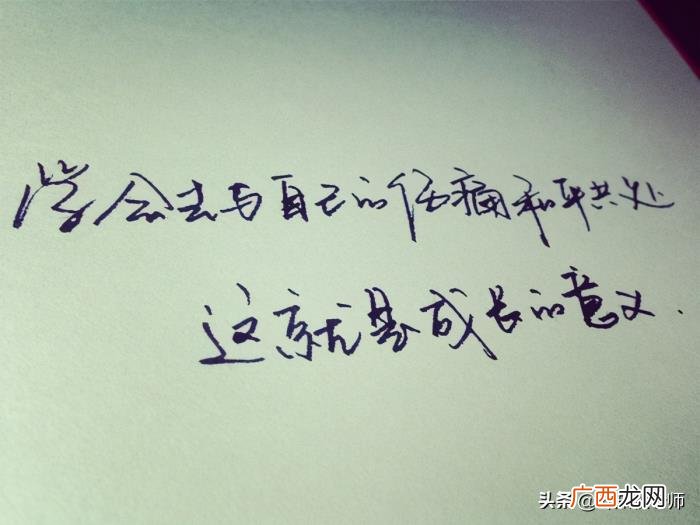 学会去与自己的伤痛和平共处
这就是成长的意义.
头条 @
师
广西龙网